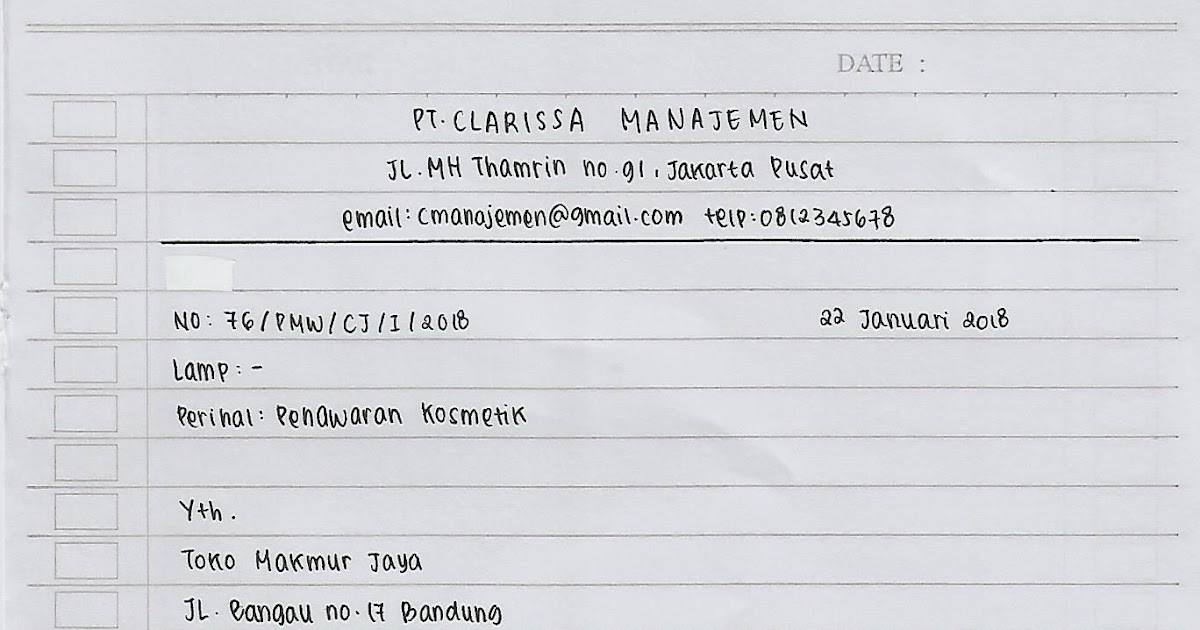 DATE :
PT. CLARISSA MANAJEMEN
JL. MH Thamrin no. 91, Jakarta Pusat
email: cmanajemen@gmail.com telp: 0812345678
NO: 76/PMW/CJ/I/2018 22 Januari 2018
Lamp: -
Perihal: Penawaran Kosmetik
Yth.
Toko Makmur Jaya
JL. Bangau no. 17 Bandung